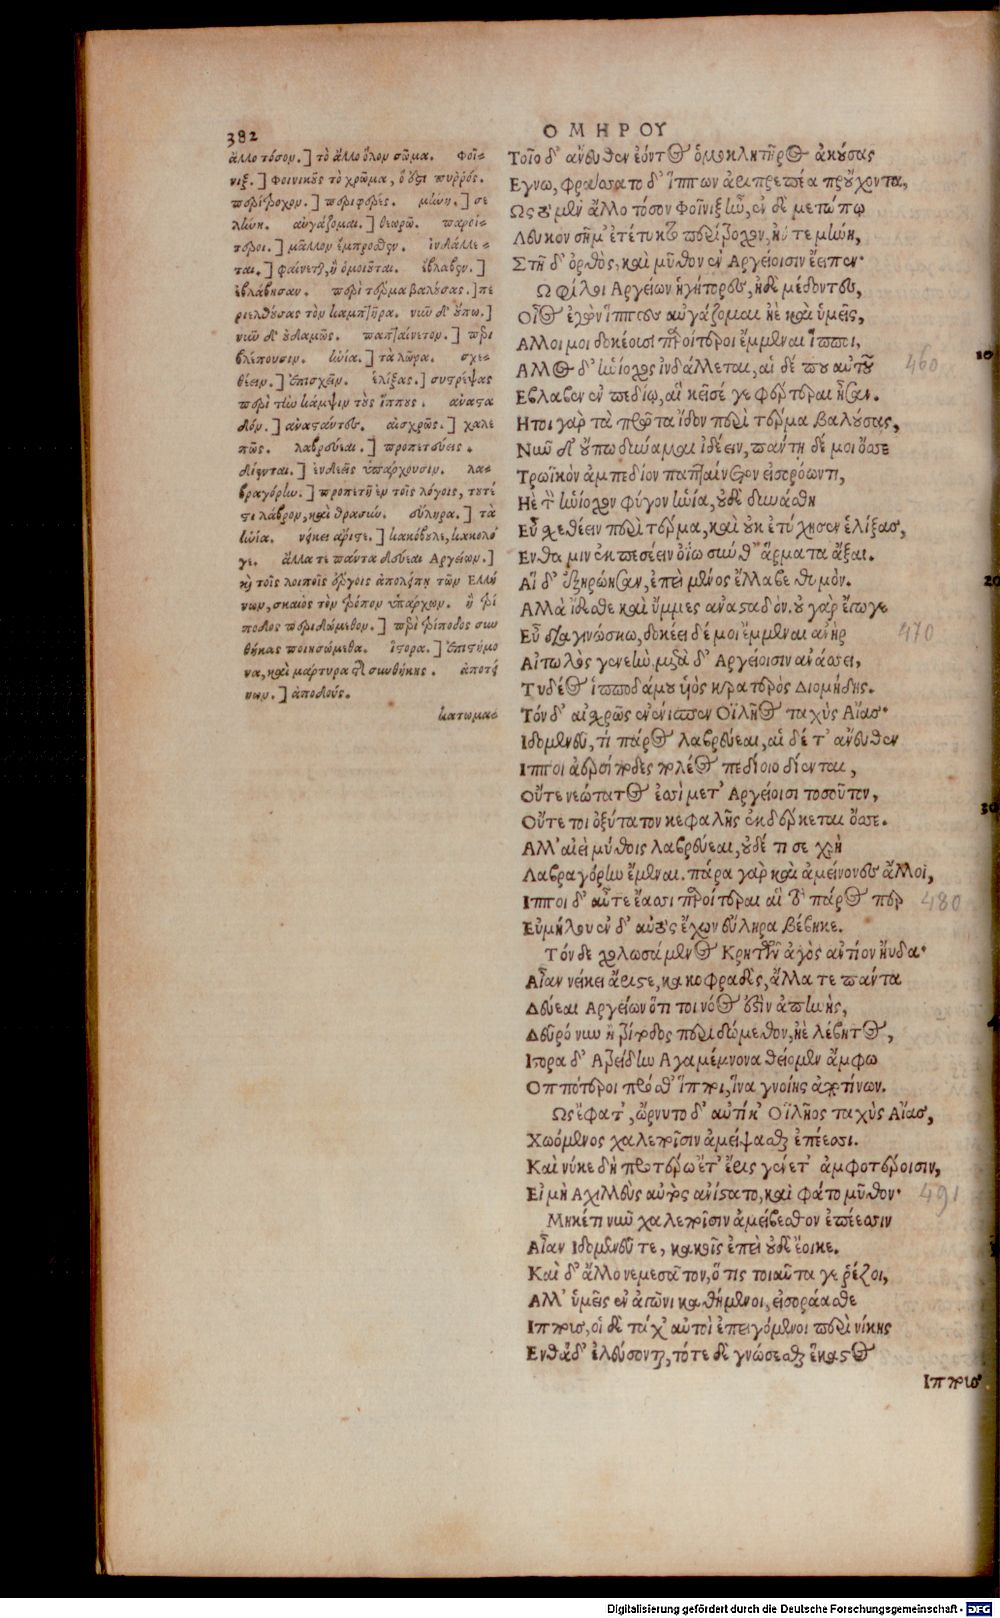 382
ΟΜΗΡΟΥ
ἄλλο τόσον.] τὸ ἄλλο ὅλον σῶμα. Φοῖ-
νιξ.] Φοινικοῦς τὸ χρῶμα, ὅ ὅστι πυρρός.
περίτροχον.] περιφερές. μήνη.] σε
λήνη. αὐγάζομαι.] θεωρῶ. παροί-
τεροι.] μᾶλλον ἔμπροσθεν. ἰνδάλλε-
ται.] φαίνεται, ἢ ὁμοιοῦται. ἔβλαβεν.]
ἐβλάβησαν. περὶ τέρμα βαλούσας.] πε
ριελθούσας τὸν καμπτῆρα. νῦν δ' οὔπω.]
νῦν δ' οὐδαμῶς. παπταίνετον.] περι
βλέπουσιν. ἡνία.] τὰ λῶρα. σχε-
θέειν.] ἐπισχεῖν. ἑλίξας.] συστρέψας
περὶ τὴν κάμψιν τοὺς ἵππους. ἀναστα
δόν.] ἀναστάντες. αἰσχρῶς.] χαλε
πῶς. λαβρεύεαι.] προπετεύεις.
δίενται.] ἐνδεεῖς ὑπάρχουσιν. λα-
βραγόρην.] προπετῆ ἐν τοῖς λόγοις, τουτέ
στι λάβρον, καὶ θρασύν. εὔληρα.] τὰ
ἡνία. νείκει ἄριστε.] κακόβουλε, κακολό
γε. ἄλλα τε πάντα δεύεαι Ἀργείων.]
καὶ τοῖς λοιποῖς ἔργοις ἀπολείπῃ τῶν Ελλή
νων, σκαιὸς τὸν τρόπον ὑπάρχων. ἢ τρί
ποδος περιδώμεθον.] περὶ τρίποδος συν
θήκας ποιησώμεθα. ἵστορα.] ἐπιγνώμο
να, καὶ μάρτυρα τῆς συνθήκης. ἀποτί
νων.] ἀποδούς.
κατωμα-
Τοῖο δ' ἄνευθεν ἐόντος ὁμοκλητῆρος ἀκούσας
Εγνω, φράσσατο δ' ἵππων ἀριπρεπέα προὔχοντα,
Ος τὸ μὲν ἄλλο τόσον φοῖνιξ ἦν, ἐν δὲ μετώπῳ
Λευκὸν σῆμ' ἐτέτυκτο περίτροχον, ἠΰτε μήνη,
Στῆ δ' ὀρθὸς, καὶ μῦθον ἐν Ἀργείοισιν ἔειπεν·
Ω φίλοι Ἀργείων ἡγήτορες, ἠδὲ μέδοντες,
Οἶος ἐγὼν ἵππους αὐγάζομαι ἠὲ καὶ ὑμεῖς,
Αλλοι μοι δοκέουσι παροίτεροι ἔμμεναι ἵπποι,
460
Αλλος δ' ἡνίοχος ἰνδάλλεται, αἱ δέ που αὐτοῦ
Εβλαβεν ἐν πεδίῳ, αἳ κεῖσέ γε φέρτεραι ἦσαν.
Ητοι γὰρ τὰ πρῶτα ἴδον περὶ τέρμα βαλούσας,
Νῦν δ' οὔπω δύναμαι ἰδέειν, πάντη δέ μοι ὄσσε
Τρωϊκὸν ἀμπεδίον παπταίνετον εἰσορόωντι,
Ηὲ τὸν ἡνίοχον φύγον ἡνία, οὐδὲ δυνάσθη
Εὖ σχεθέειν περὶ τέρμα, καὶ οὐκ ἐτύχησεν ἑλίξας,
Ενθα μιν ἐκπεσέειν ὀΐω σύν θ' ἅρματα ἆξαι.
Αἳ δ' ἐξηρώησαν, ἐπεὶ μένος ἔλλαβε θυμόν.
Αλλὰ ἴδεσθε καὶ ὔμμες ἀναςαδόν. οὐ γὰρ ἔγωγε
Εὖ διαγινώσκω, δοκέει δέ μοι ἔμμεναι ἀνὴρ
470
Αἰτωλὸς γενεὴν, μετὰ δ' Ἀργείοισιν ἀνάσσει,
Τυδέος ἱπποδάμου υἱὸς κρατερὸς Διομήδης.
Τὸν δ' αἰσχρῶς ἐνένιπεν Οϊλῆος ταχὺς Αἴας·
Ιδομενεῦ, τί πάρος λαβρεύεαι, αἱ δέ τ' ἄνευθεν
Ιπποι ἀερσίποδες πολέος πεδίοιο δίενται,
Οὔτε νεώτατος ἐσσὶ μετ' Ἀργείοισι τοσοῦτον,
Οὔτε τοι ὀξύτατον κεφαλῆς ἐκδέρκεται ὄσσε.
Αλλ' αἰεὶ μύθοις λαβρεύεαι, οὐδέ τι σε χρὴ
Λαβραγόρην ἔμεναι. πάρα γὰρ καὶ ἀμείνονες ἄλλοι,
Ιπποι δ' αὖτε ἔασσι παροίτεραι αἳ τὸ πάρος περ
480
Εὐμήλου ἐν δ' αὐτὸς ἔχων εὔληρα βέβηκε.
Τὸν δὲ χολωσάμενος Κρητῶν ἀγὸς ἀντίον ηὔδα·
Αἶαν νείκει ἄριστε, κακοφραδὲς, ἄλλα τε πάντα
Δεύεαι Ἀργείων ὅτι τοι νόος ἐστὶν ἀπηνὴς,
Δεῦρό νυν ἢ τρίποδος περιδώμεθον, ἠὲ λέβητος,
Ιστορα δ' Ἀτρείδην Ἀγαμέμνονα θείομεν ἄμφω
Οπποτεροι πρόσθ' ἵπποι, ἵνα γνοίης ἀποτίνων.
Ως ἔφατ', ὤρνυτο δ' αὐτίκ' Οϊλῆος ταχὺς Αἴας,
Χωόμενος χαλεποῖσιν ἀμείψασθαι ἐπέεσσι.
Καὶ νύκε δὴ προτέρω ἔτ' ἔρις γένετ' ἀμφοτέροισιν,
Εἰ μὴ Ἀχιλλεὺς αὐτὸς ἀνίστατο, καὶ φάτο μῦθον·
491
Μηκέτι νῦν χαλεποῖσιν ἀμείβεσθον ἐπέεσσιν
Αἶαν Ιδομενεῦ τε, κακοῖς ἐπεὶ οὐδὲ ἔοικε.
Καὶ δ' ἄλλο νεμεσᾶτον, ὅ τις τοιαῦτα γε ῥέζοι,
Αλλ' ὑμεῖς ἐν ἀγῶνι καθήμενοι, εἰσοράασθε
Ιππους, οἱ δὲ τάχ' αὐτοὶ ἐπειγόμενοι περὶ νίκης
Ενθάδ' ἐλεύσονται, τότε δὲ γνώσεσθαι ἕκαστος
Ιππους
10
20
30
Digitalisierung gefördert durch die Deutsche Forschungsgemeinschaft - DFG